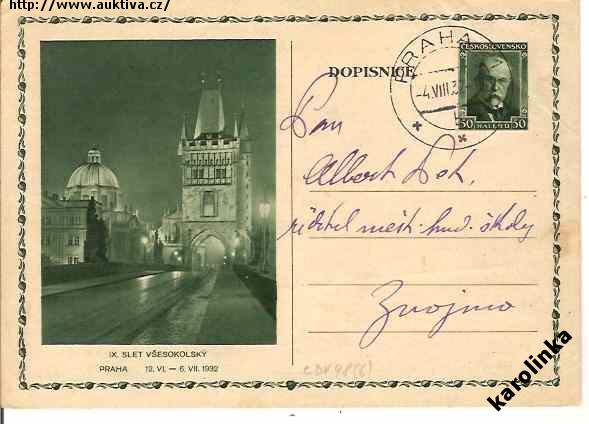 http://www.auktiva.cz/
DOPISNICE
PRAHA
-4.VIII.32-
ČESKOSLOVENSKO
50 HALÉŘŮ 50
Pan
Albert Pek,
ředitel měst. hud. školy
Znojmo
IX. SLET VŠESOKOLSKÝ
PRAHA 12. VI. — 6. VII. 1932
karolinka